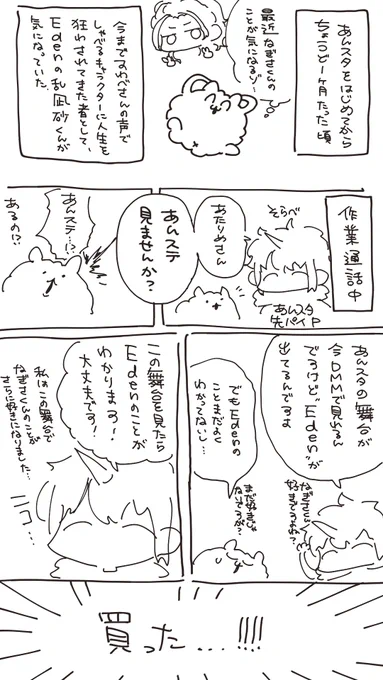 あんスタをはじめてから
ちょうど1ヶ月たった頃
最近なぎさくんの
ことが気になるゾ…
今まですわべさんの声で
しゃべるキャラクターに人生を
狂わされてきた者として、
Edenの乱凪砂くんが
気になっていた。
作業通話中
そらべ
あんスタ
先パイP
あたりめさん
あんステ
見ませんか?
あんステ…!?
あるの!?
あんスタの舞台が
今DMMで見れるん
ですけど"Eden"が
出てるんですよ
なぎさくん
好きですよね?
でもEdenの
ことまだよく
わかってないし…
まだ好きじゃ
ないですが?
この舞台を見たら
Edenのことが
わかります!
大丈夫です!
私はこの舞台で
なぎさくんのことが
さらに好きになりました…
ニコ…
買った…!!!!